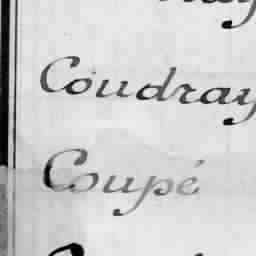 Coudray
Coupé